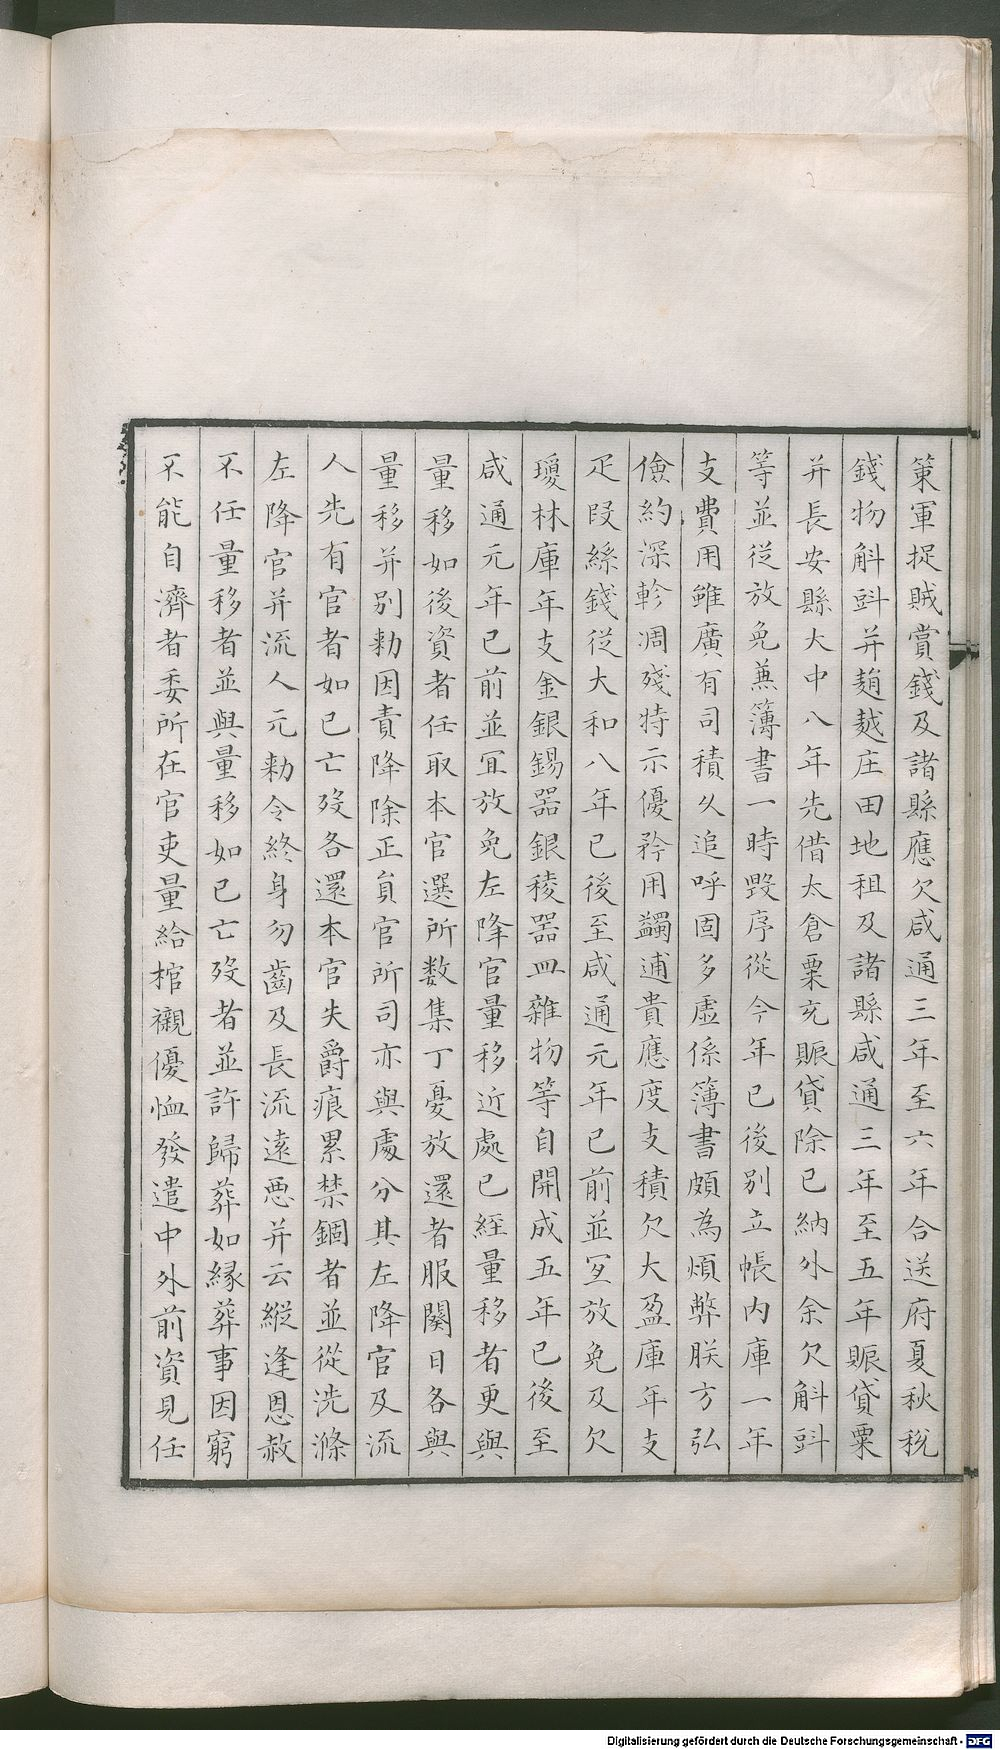 策軍捉賊賞錢及諸縣應欠咸通三年至六年合送府夏秋稅
錢物斛㪷并麹趑庄田地租及諸縣咸通三年至五年賑貸粟
并長安縣大中八年先借太倉粟充賑貸除已納外余欠斛㪷
等並従放免蕪簿書一時毀序從今年已後別立帳內庫一年
支費用雖廣有司積久追呼固多虛係簿書頗為煩弊朕方弘
儉約深軫凋殘特示優矜用蠲逋責應度支積欠大盈庫年支
疋段絲錢従大和八年已後至咸通元年已前並宜放免及欠
瓊林庫年支金銀錫器銀稜器皿雜物等自開成五年已後至
咸通元年已前並宜放免左降官量移近處已経量移者更與
量移如後資者任取本官選所数集丁憂放還者服闋日各與
量移并別勑因責降除正員官所司亦與處分其左降官及流
人先有官者如已亡歿各還本官失爵痕累禁錮者並從洗滌
左降官并流人元勑令終身勿齒及長流遠惡并云縱逢恩赦
不任量移者並與量移如已亡歿者並許歸葬如縁葬事因窮
不能自濟者委所在官吏量給棺櫬優恤發遣中外前資見任
Digitalisierung gefördert durch die Deutsche Forschungsgemeinschaft - DFG